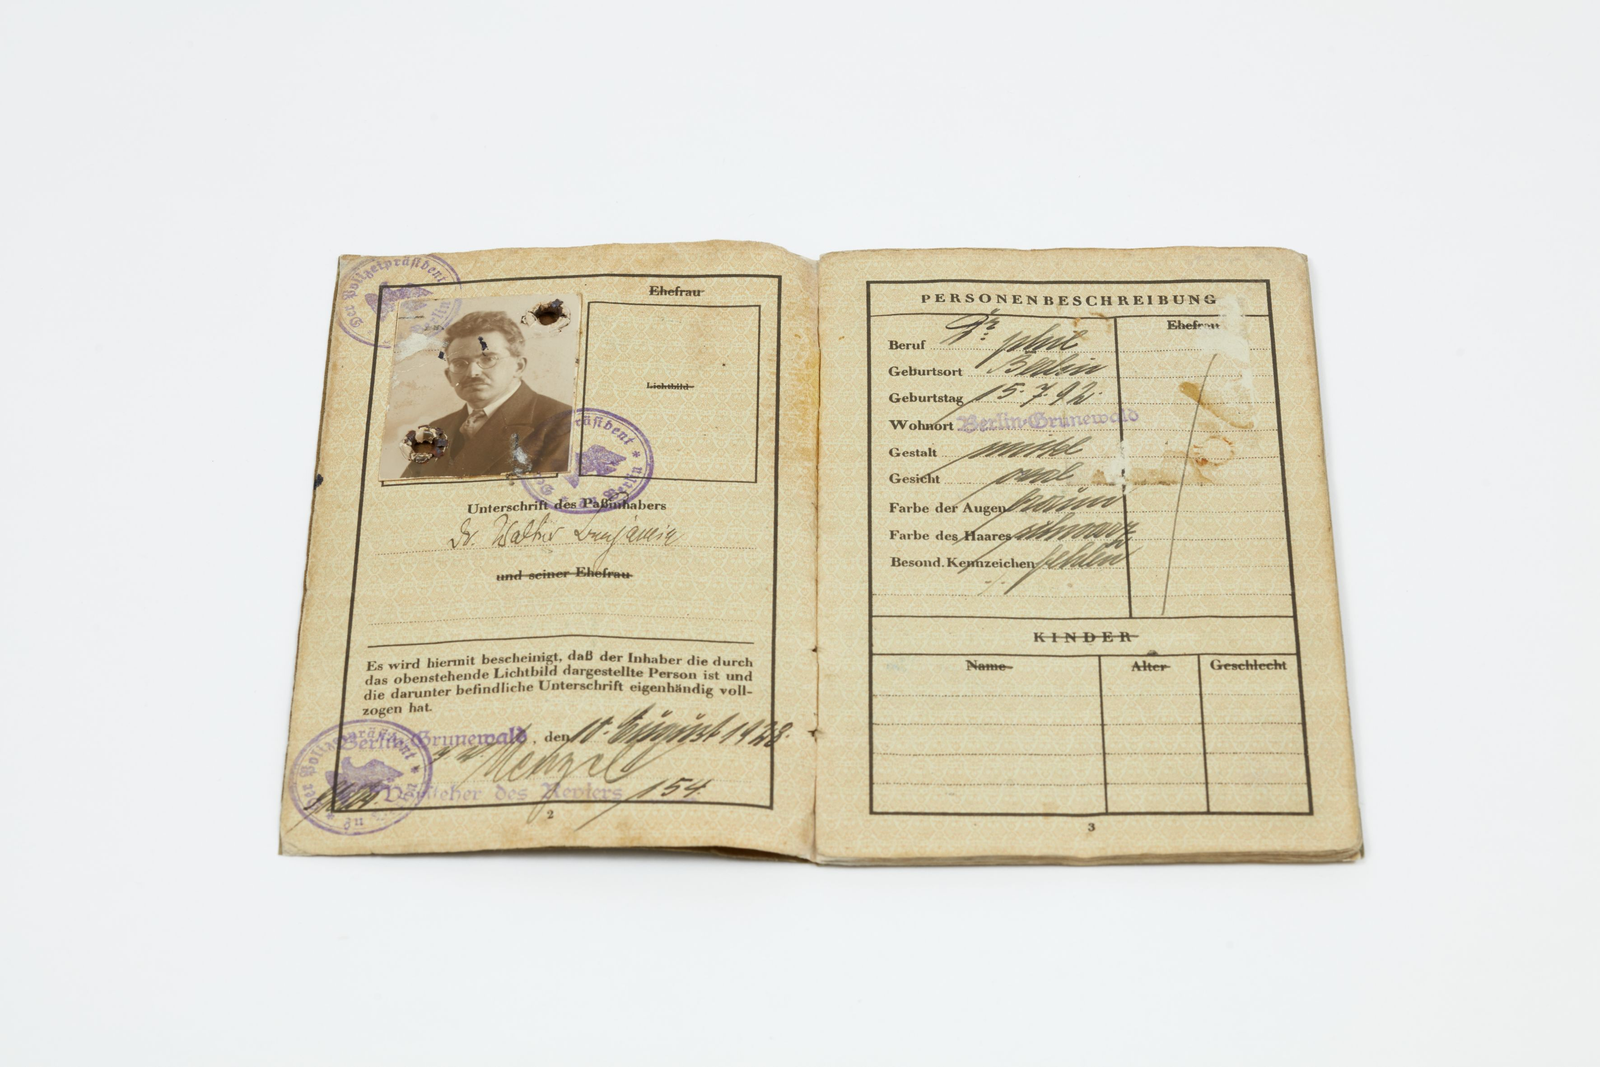 Der Polizeipräsident
Berlin
Ehefrau
Lichtbild
Der Polizeipräsident * in Berlin *
Unterschrift des Paßinhabers
Dr. Walter Benjamin
und seiner Ehefrau
Es wird hiermit bescheinigt, daß der Inhaber die durch
das obenstehende Lichtbild dargestellte Person ist und
die darunter befindliche Unterschrift eigenhändig voll-
zogen hat.
Berlin-Grunewald, den 10. August 1928.
Menzel
Vorsteher des Reviers 154
Der Polizeipräsident * in
2
PERSONENBESCHREIBUNG
Ehefrau
Beruf Dr. phil
Geburtsort Berlin
Geburtstag 15.7.92
Wohnort Berlin-Grunewald
Gestalt mittel
Gesicht oval
Farbe der Augen braun
Farbe des Haares schwarz
Besond. Kennzeichen fehlen
KINDER
Name Alter Geschlecht
3